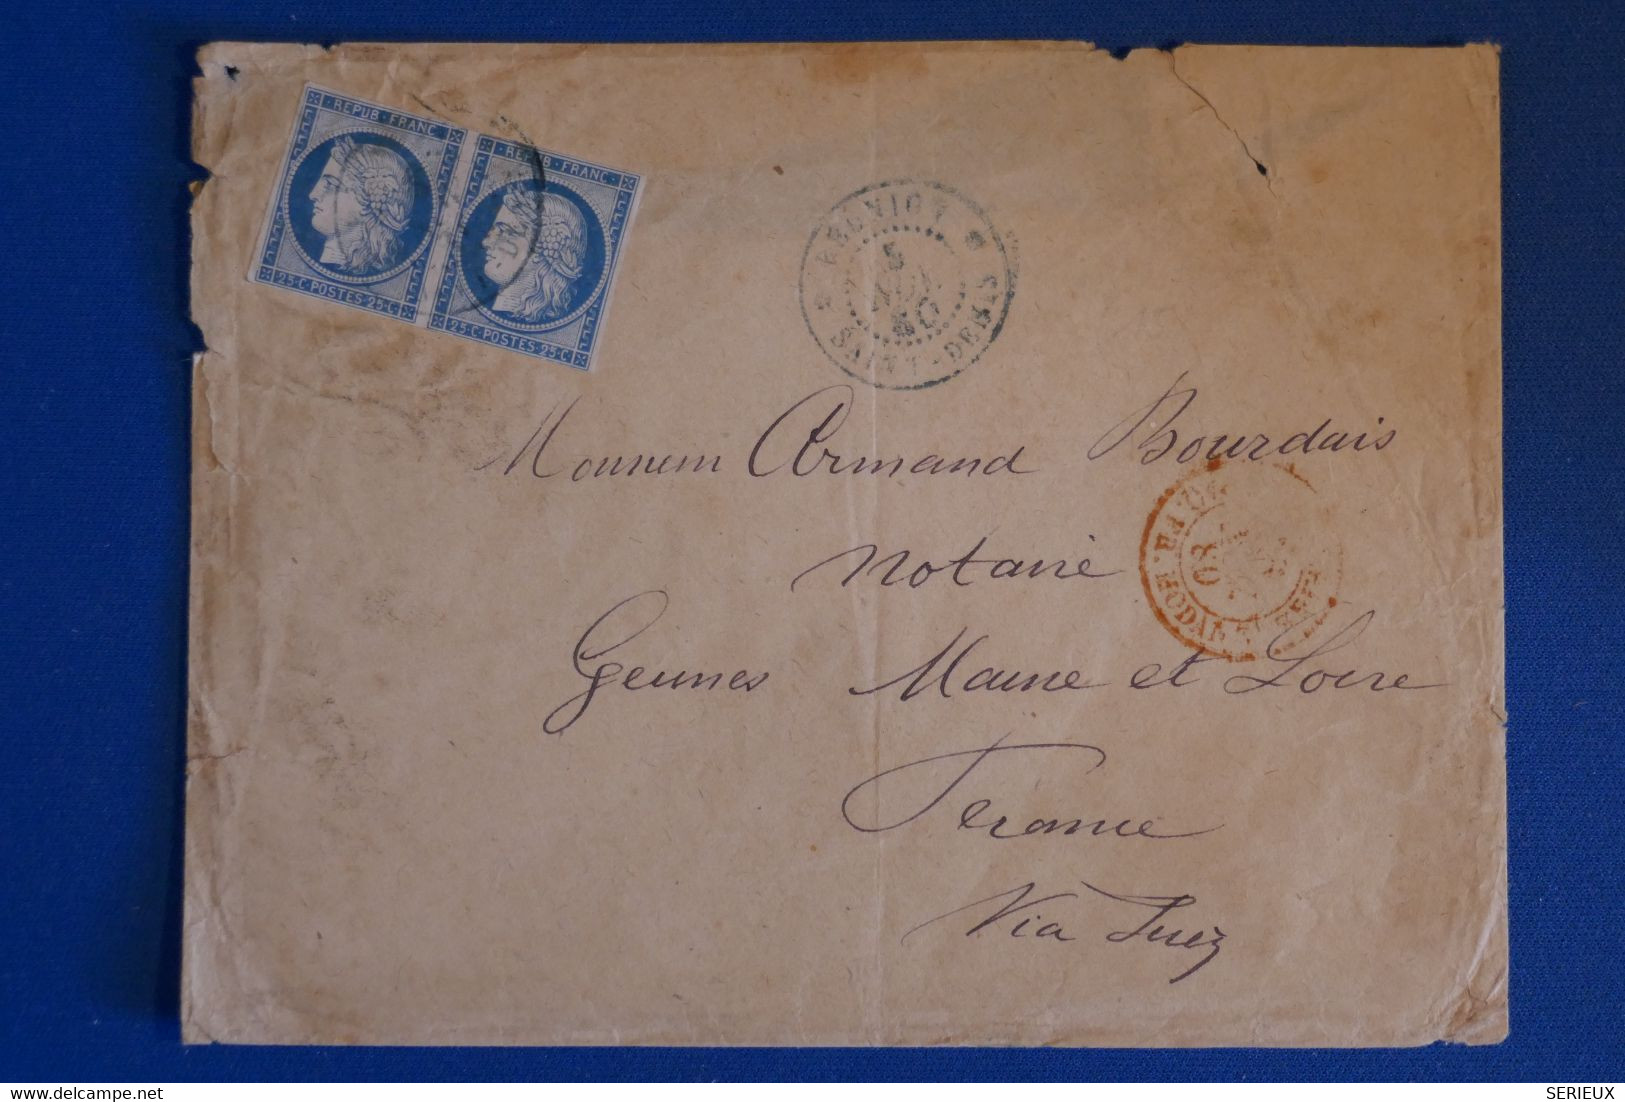 REPUB·FRANC
25·C·POSTES·25·C
REPUB·FRANC
25·C·POSTES·25·C
REUNION
5
80
SAINT-DENIS
Monsieur Armand Bourdais
Notaire
80
MODANE
Gennes Maine et Loire
France
Via Suez
© delcampe.net
SERIEUX